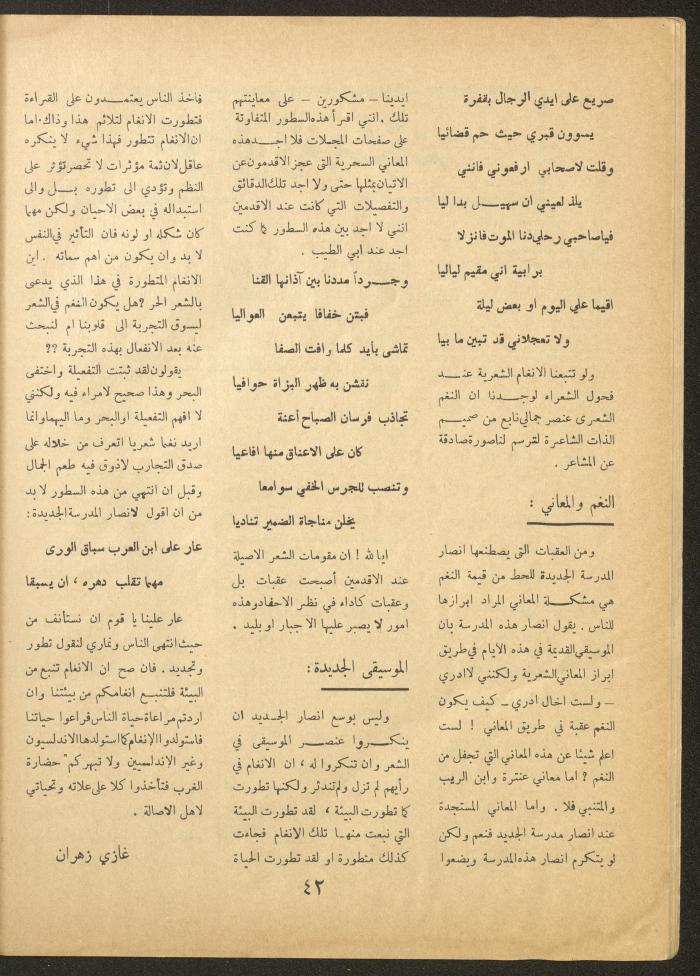 صريع على ايدي الرجال بقفرة
يسوون قبري حيث حم قضائيا
وقلت لاصحابي ارفعوني فانني
يلذ لعيني ان سهيـــل بدا ليا
فياصاحبي رحلي دنا الموت فانزلا
برابية اني مقيم لياليا
اقيما علي اليوم او بعض ليلة
ولا تعجلاني قد تبين ما بيا
ولو تتبعنا الانغام الشعرية عنــد
فحول الشعراء لوجــدنا ان النغم
الشعرى عنصر جمالي نابع من صميــم
الذات الشاعرة لترسم لنا صورة صادقة
عن المشاعر .
النغم والمعاني :
ومن العقبات التي يصطنعها انصار
المدرسة الجديدة للحط من قيمة النغم
هي مشكـــلة المعاني المراد ابرازها
للناس . يقول انصار هذه المدرسة بان
الموسيقى القديمة في هذه الايام في طريق
ابراز المعاني الشعرية ولكنني لا ادري
– ولست اخال ادري – كيف يكون
النغم عقبة في طريق المعاني ! لست
اعلم شيئا عن هذه المعاني التي تجفل من
النغم ? اما معاني عنترة وابن الريب
والمتنبي فلا . واما المعاني المستجدة
عند انصار مدرسة الجديد فنعم ولكن
لو يتكرم انصار هذه المدرسة ويضعوا
ايدينا – مشكورين – على معاينتهم
تلك . انني اقرأ هذه السطور المتفاوتة
على صفحات المجلات فلا اجــد هذه
المعاني السحرية التي عجز الاقدمون عن
الاتيان بمثلها حتى ولا اجد تلك الدقائق
والتفصيلات التي كانت عند الاقدمين
انني لا اجد بين هذه السطور كما كنت
اجد عند ابي الطيب .
وجـــرداً مددنا بين آذانها القنا
فبتن خفافا يتبعن العواليا
تماشى بأيد كلما وافت الصفا
نقشن به ظهر البزاة حوافيا
تجاذب فرسان الصباح أعنة
كان على الاعناق منها افاعيا
وتنصب للجرس الخفي سوامعا
يخلن مناجاة الضمير تناديا
ايا لله ! ان مقومات الشعر الاصيلة
عند الاقدمين أصبحت عقبات بل
وعقبات كاداء في نظر الاحفاد وهذه
امور لا يصبر عليها الا جبار او بليد .
الموسيقى الجديدة :
وليس بوسع انصار الجــديد ان
ينكـــروا عنصــر الموسيقى في
الشعر وان تنكروا له ، ان الانغام في
رأيهم لم تزل ولم تندثر ولكنها تطورت
كما تطورت البيئة ، لقد تطورت البيئة
التي نبعت منهــا تلك الانغام فجاءت
كذلك متطورة او لقد تطورت الحياة
فاخذ الناس يعتمــدون على القراءة
فتطورت الانغام لتلائم هذا وذاك . اما
ان الانغام تتطور فهذا شيء لا ينكره
عاقل لان ثمة مؤثرات لا تحصر تؤثر على
النظم وتؤدي الى تطوره بــل والى
استبداله في بعض الاحيان ولكن مهما
كان شكله او لونه فان التأثير في النفس
لا بد وان يكون من اهم سماته . اين
الانغام المتطورة في هذا الذي يدعى
بالشعر الحر ? هل يكون النغم في الشعر
ليسوق التجربة الى قلوبنا ام لنبحث
عنه بعد الانفعال بهذه التجربة ??
يقولون لقد ثبتت التفعيلة واختفى
البحر وهذا صحيح لامراء فيه ولكنني
لا افهم التفعيلة او البحر وما اليهما وانما
اريد نغما شعريا اتعرف من خلاله على
صدق التجارب لاذوق فيه طعم الجمال
وقبل ان انتهي من هذه السطور لا بد
من ان اقول لانصار المدرسة الجديدة :
عار على ابن العرب سباق الورى
مهما تقلب دهره ، ان يسبقا
عار علينا يا قوم ان نستأنف من
حيث انتهى الناس ونماري لنقول تطور
وتجديد . فان صح ان الانغام تنبع من
البيئة فلتنبــع انغامكم من بيئتنا وان
اردتم مراعاة حياة الناس فراعوا حياتنا
فاستولدوا الإنغام كما استولدها الاندلسيون
وغير الإندلسيين ولا تبهركم حضارة
الغرب فتأخذوا كلا على علاته وتحياتي
لاهل الاصالة .
غازي زهران
٤٢